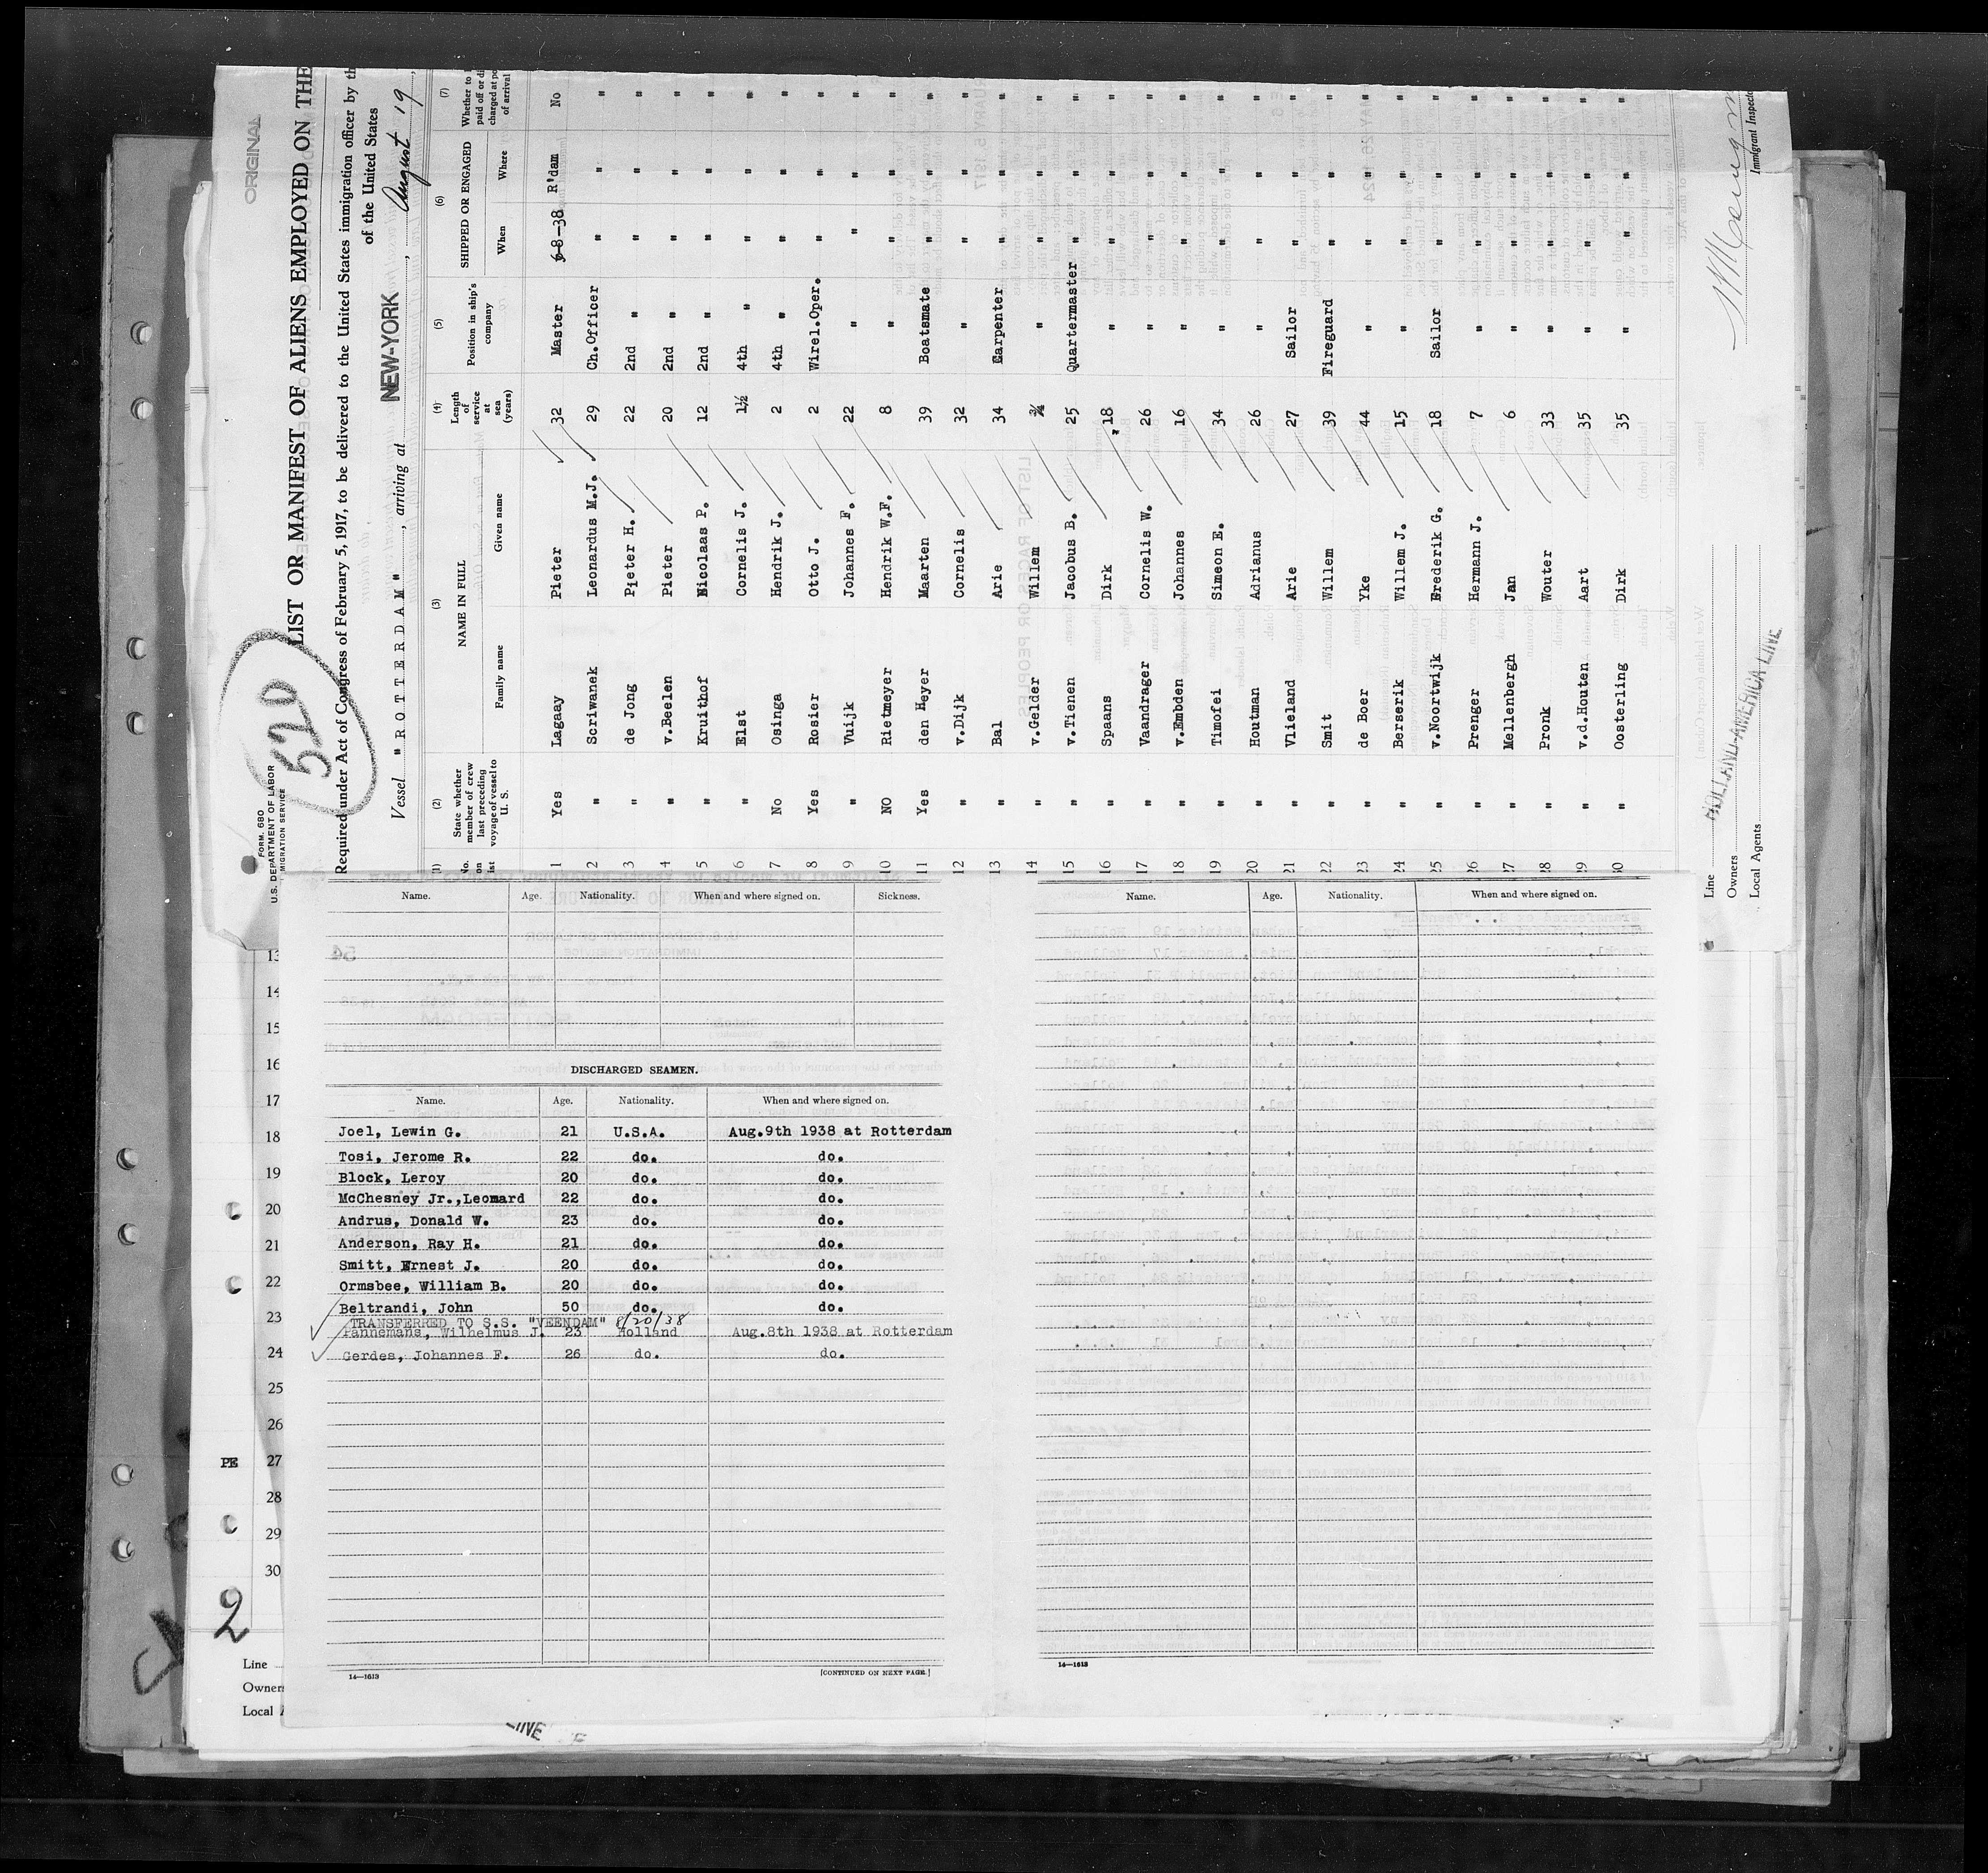 ORIGINAL
FORM 680
U.S. DEPARTMENT OF LABOR
MIGRATION SERVICE
520
LIST OR MANIFEST OF ALIENS EMPLOYED ON THE
Required under Act of Congress of February 5, 1917, to be delivered to the United States immigration officer by th
of the United States
Vessel "ROTTERDAM", arriving at NEW-YORK, August 19,
(1) (2) (3) (4) (5) (6) (7)
No. on ist
State whether member of crew last preceding voyage of vessel to U. S.
NAME IN FULL
Family name Given name
Length of service at sea (years)
Position in ship's company
SHIPPED OR ENGAGED
When Where
Whether to paid off or di charged at po of arrival
1 Yes Lagaay Pieter 32 Master 6-8-38 R'dam No
2 " Scriwanek Leonardus M.J. 29 Ch.Officer " " "
3 " de Jong Pieter H. 22 2nd " " " "
4 " v.Beelen Pieter 20 2nd " " " "
5 " Kruithof Nicolaas P. 12 2nd " " " "
6 " Elst Cornelis J. 1½ 4th " " " "
7 No Osinga Hendrik J. 2 4th " " " "
8 Yes Rosier Otto J. 2 Wirel.Oper. " " "
9 " Vuijk Johannes F. 22 " " " "
10 NO Rietmeyer Hendrik W.F. 8 " " " "
11 Yes den Heyer Maarten 39 Boatsmate " " "
12 " v.Dijk Cornelis 32 " " " "
13 " Bal Arie 34 Carpenter " " "
14 " v.Gelder Willem ¾ " " " "
15 " v.Tienen Jacobus B. 25 Quartermaster " " "
16 " Spaans Dirk 18 " " " "
17 " Vaandrager Cornelis W. 26 " " " "
18 " v.Embden Johannes 16 " " " "
19 " Timofei Simeon E. 34 " " " "
20 " Houtman Adrianus 26 " " " "
21 " Vlieland Arie 27 Sailor " " "
22 " Smit Willem 39 Fireguard " " "
23 " de Boer Yke 44 " " " "
24 " Berserik Willem J. 15 " " " "
25 " v.Noortwijk Frederik G. 18 Sailor " " "
26 " Prenger Hermann J. 7 " " " "
27 " Mellenbergh Jan 6 " " " "
28 " Pronk Wouter 33 " " " "
29 " v.d.Houten Aart 35 " " " "
30 " Oosterling Dirk 35 " " " "
Line HOLLAND-AMERICA LINE
Owners
Local Agents
Immigrant Inspecto
Name. Age. Nationality. When and where signed on. Sickness.
DISCHARGED SEAMEN.
Name. Age. Nationality. When and where signed on.
Joel, Lewin G. 21 U.S.A. Aug.9th 1938 at Rotterdam
Tosi, Jerome R. 22 do. do.
Block, Leroy 20 do. do.
McChesney Jr.,Leomard 22 do. do.
Andrus, Donald W. 23 do. do.
Anderson, Ray H. 21 do. do.
Smitt, Ernest J. 20 do. do.
Ormsbee, William B. 20 do. do.
Beltrandi, John 50 do. do.
TRANSFERRED TO S.S. "VEENDAM" 8/20/38
Pannemans, Wilhelmus J. 23 Holland Aug.8th 1938 at Rotterdam
Gerdes, Johannes F. 26 do. do.
14—1613 [CONTINUED ON NEXT PAGE.]
Name. Age. Nationality. When and where signed on.
14—1613
13
14
15
16
17
18
19
20
21
22
23
24
25
26
PE 27
28
29
30
2
Line
Owner
Local A
LINE